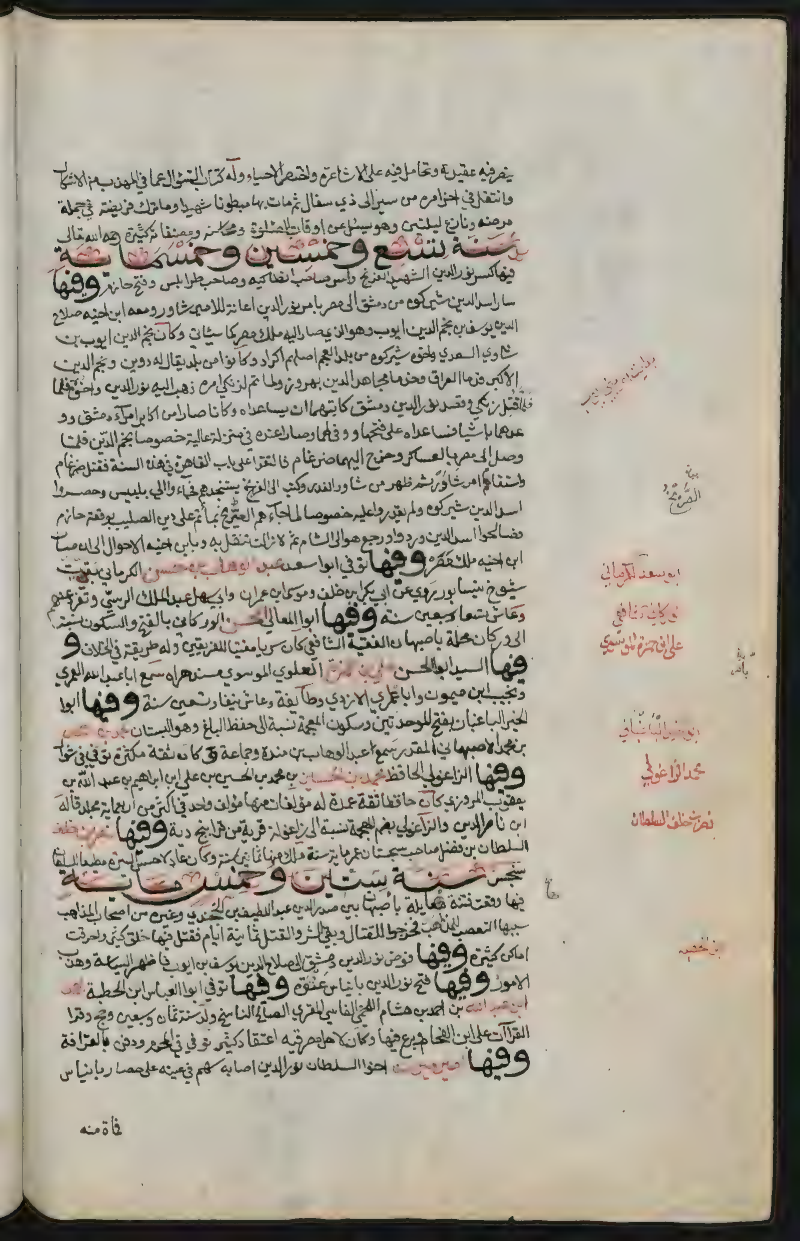 ينصر فيه عقيدته وتحامل فيه على الاشاعرة واختصر الاحياء وله كتاب السؤال عما في المهذب من الاشكال
وانتقل في اخر امره من سير الى ذي سفال ثم مات بها مبطونا شهيدا وما ترك فريضة في جملة
مرضه ونازع ليلتين وهو يسئل عن اوقات الصلوة ومحاسنه ومصنفاته كثيرة رحمه الله تعالى
سنة تسع وخمسين وخمسماية
فيها كسر نور الدين الشهيد الفرنج واسر صاحب انطاكية وصاحب طرابلس وفتح حارم وفيها
سار اسد الدين شيركوه من دمشق الى مصر بامر نور الدين اعانة للامير شاور ومعه ابن اخيه صلاح
الدين يوسف بن نجم الدين ايوب وهو الذي صار اليه ملك مصر كما سياتي وكان نجم الدين ايوب بن
شاذي السعدي واخوه شيركوه من بلد العجم اصلهم اكراد وكانوا من بلد يقال له دوين ونجم الدين
الاكبر قدما العراق وخدما مجاهد الدين بهروز
قتل زنكي وقصد نور الدين دمشق كاتبهما ان يساعداه وكانا صارا من اكابر امراء دمشق و
وعدهما باشيا فساعداه على فتحها ووفى لهما وصارا عنده في منزلة عالية خصوصا نجم الدين فلما
وصل الى مصر بالعساكر وخرج اليهما ضرغام فالتقوا على باب القاهرة في هذه السنة فقتل ضرغام
واستقام امر شاور ثم ظهر من شاور الغدر وكتب الى الفرنج يستنجدهم فجاءوا الى بلبيس وحصروا
اسد الدين شيركوه ولم يقدروا عليه خصوصا لما جاءهم الصريخ بما تم على دين الصليب بوقعة حارم
فصالحوا اسد الدين وردوا ورجع هو الى الشام ثم لا زالت تنتقل به وبابن اخيه الاحوال الى ان صار
ابن اخيه ملك مصر وفيها توفي ابو سعد عبد الوهاب بن حسن الكرماني بقية
شيوخ نيسابور روى عن ابي بكر بن خلف وموسى بن عمران وابي سهل عبد الملك الرسي وتفرد عنهم
وعاش تسعا وسبعين سنة وفيها ابو المعالي الحسن الوركاني بالفتح والسكون نسبة
الى وركان محلة باصبهان الفقيه الشافعي كان مفتيا للفريقين وله طريقة في الخلاف و
فيها السيد ابو الحسن علي بن حمزة العلوي الموسوي مسند هراة سمع ابا عبد الله العمري
ونجيب ابن ميمون وابا عامر الازدي وطائفة وعاش نيفا وتسعين سنة وفيها ابو
الخير الباغبان بفتح الموحدتين وسكون المعجمة نسبة الى حفظ الباغ وهو البستان محمد بن احمد
بن محمد الاصبهاني المقدر سمع عبد الوهاب بن مندة وجماعة وكان ثقة مكثرا توفي في شوال
وفيها الزاغولي الحافظ محمد بن الحسين بن محمد بن الحسين بن علي ابن ابراهيم بن عبد الله بن
يعقوب المروزي كان حافظا ثقة عمدة له مؤلفات منها مؤلف واحد في اكثر من اربعماية مجلد قاله
ابن ناصر الدين والزاغولي بضم المعجمة نسبة الى زاغولة قرية من قرى بنج ديه وفيها نصر بن خلف
السلطان بن فضل صاحب سجستان عمر ماية سنة ملك منها ثمانين سنة وكان عادلا حسن السيرة مطيعا للسلطان
سنجر سنة ستين وخمس ماية
فيها وقعت فتنة هايلة باصبهان بين صدر الدين عبد اللطيف بن الخجندي وغيره من اصحاب المذاهب
سببها التعصب للمذاهب فخرجوا للقتال وبقي الشر والقتل ثمانية ايام فقتل فيها خلق كثير واحرقت
اماكن كثيرة وفيها فوض نور الدين دمشق الى صلاح الدين يوسف بن ايوب فاظهر السياسة وهذب
الامور وفيها فتح نور الدين بانياس عنوة وفيها توفي ابو العباس ابن الحطية احمد
ابن عبد الله بن احمد بن هشام اللخمي الفاسي المقري الصالح الناسخ ولد سنة ثمان وسبعين وحج وقرا
القرآت على ابن الفحام وبرع فيها وكان لاهل مصر فيه اعتقاد كثير توفي في المحرم ودفن بالقرافة
وفيها اخو السلطان نور الدين اصابه سهم في عينه على حصار بانياس
فمات منه
بيان
الصريخ
ابو سعد الكرماني
وركاني شافعي
علي ابن حمزة الموسوي
ابو الخير الباغباني
محمد الزاغولي
نصر بن خلف السلطان
ابن الحطية